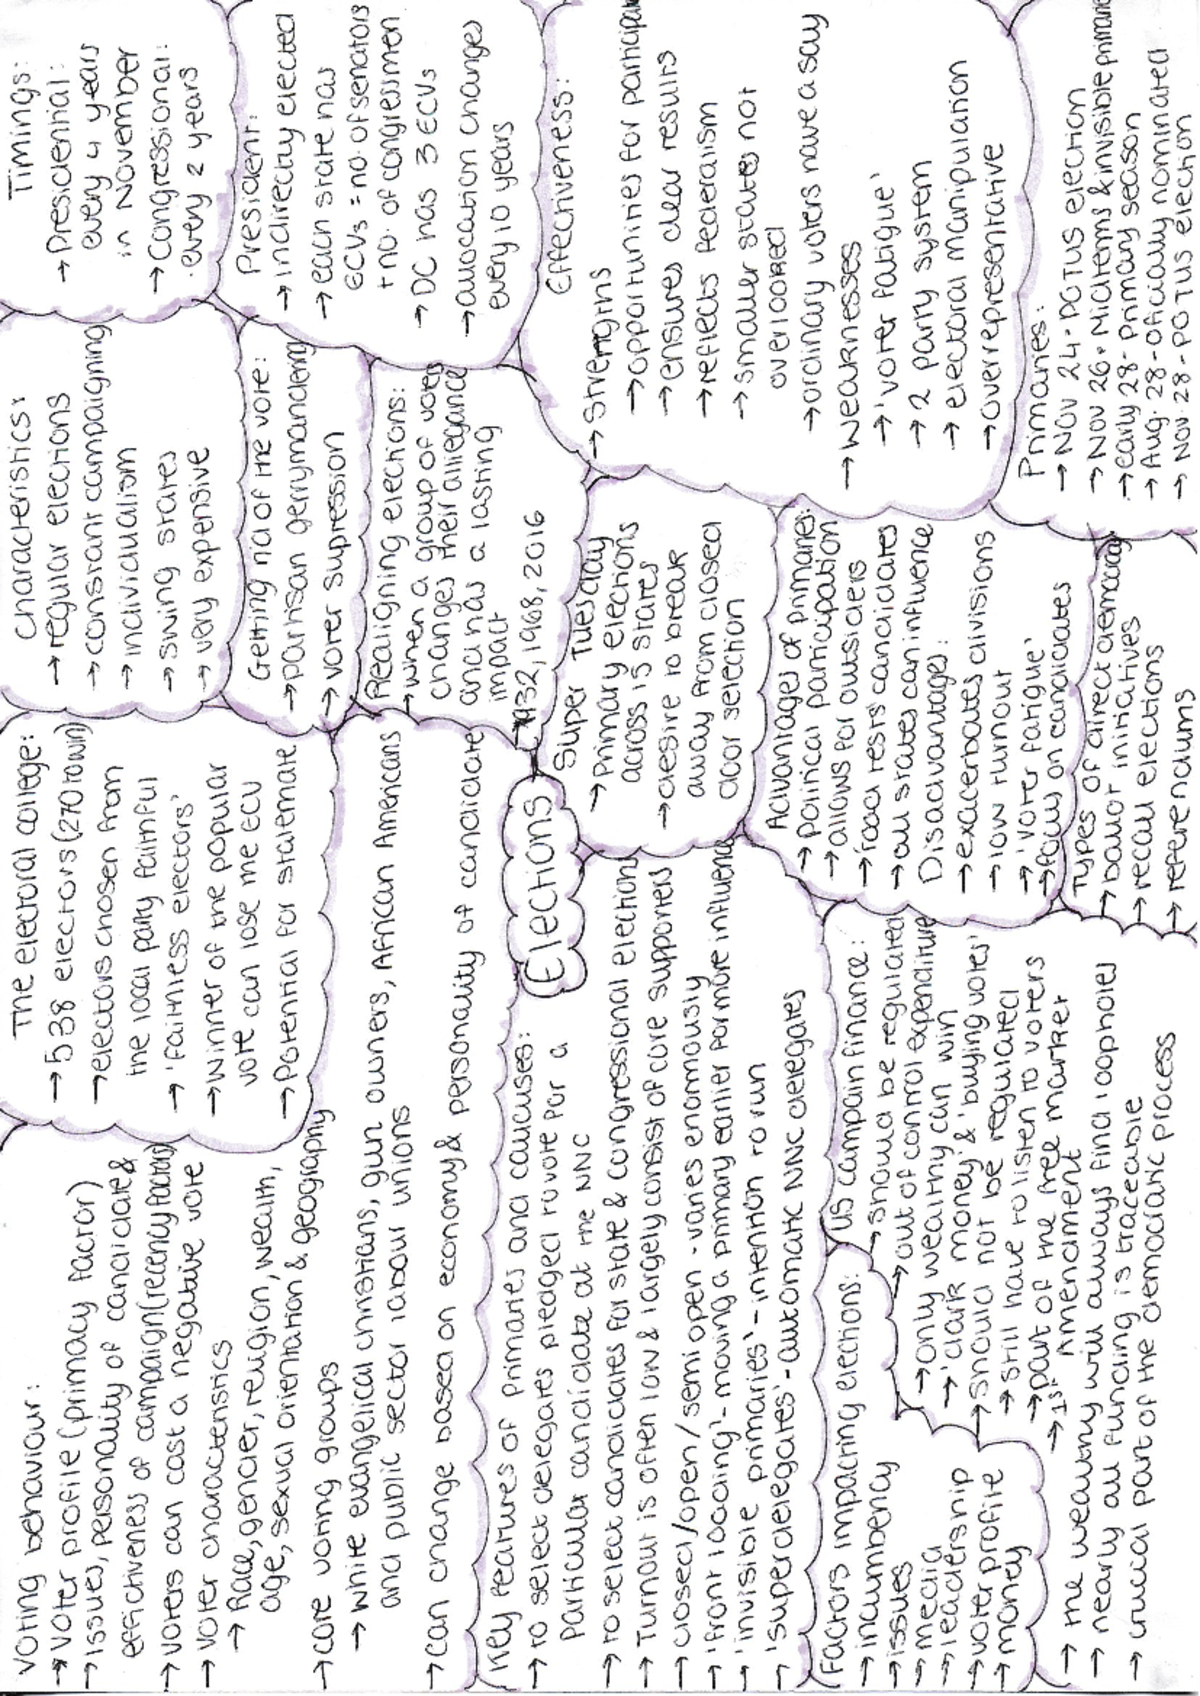 Voting behaviour:
→ Voter profile (primacy factor)
→ Issues, personality of candidate &
effictiveness of campaign (recency factor)
→ Voters can cast a negative vote
→ Voter characteristics
→ Race, gender, religion, wealth,
age, sexual orientation & geography
→ core voting groups
→ white evangelical christians, gun owners, African Americans
and public sector labour unions
→ can change based on economy & personality of candidate
The electoral college:
→ 538 electors (270 to win)
→ electors chosen from
the local party faithful
→ 'faithless electors'
→ winner of the popular
vote can lose the ECV
→ Potential for stalemate
characteristics:
→ regular elections
→ constant campaigning
→ individualism
→ swing states
→ very expensive
Timings:
→ Presidential:
every 4 years
in November
→ Congressional:
every 2 years
Getting rid of the vote:
→ partisan gerrymandering
→ voter supression
President:
→ indirectly elected
→ each state has
ECVs = no. of senators
+ no. of congressmen
→ DC has 3 ECVs
→ allocation changes
every 10 years
Realigning elections:
→ when a group of voters
changes their allegiance
and has a lasting
impact
→ 1932, 1968, 2016
Elections
Effectiveness:
→ Strengths
→ opportunities for participation
→ ensures clear results
→ reflects federalism
→ smaller states not
overlooked
→ ordinary voters have a say
→ weaknesses
→ 'voter fatigue'
→ 2 party system
→ electoral manipulation
→ overrepresentative
Super Tuesday
→ Primary elections
across 15 states
→ desire to break
away from closed
door selection
Key features of primaries and caucuses:
→ to select delegates pledged to vote for a
particular candidate at the NNC
→ to select candidates for state & congressional election
→ Turnout is often low & largely consist of core supporters
→ closed/open/semi open - varies enormously
→ 'front loading' - moving a primary earlier for more influence
→ 'invisible primaries' - intention to run
→ 'superdelegates' - automatic NNC delegates
Advantages of primaries:
→ political participation
→ allows for outsiders
→ road tests candidates
→ all states can influence
Disadvantages:
→ exacerbates divisions
→ low turnout
→ 'voter fatigue'
→ focus on candidates
Primaries:
→ Nov 24 - POTUS election
→ Nov 26 - Midterms & invisible primaries
→ early 28 - primary season
→ Aug. 28 - officially nominated
→ Nov. 28 - POTUS election
Factors impacting elections:
→ incumbency
→ issues
→ media
→ leadership
→ voter profile
→ money
US campain finance:
→ should be regulated
→ out of control expenditure
→ only wealthy can win
→ 'dark money' & 'buying votes'
→ should not be regulated
→ still have to listen to voters
→ part of the free market
→ 1st Amendment
→ the wealthy will always find loopholes
→ nearly all funding is traceable
→ crucial part of the democratic process
Types of direct democracy
→ ballot initiatives
→ recall elections
→ referendums